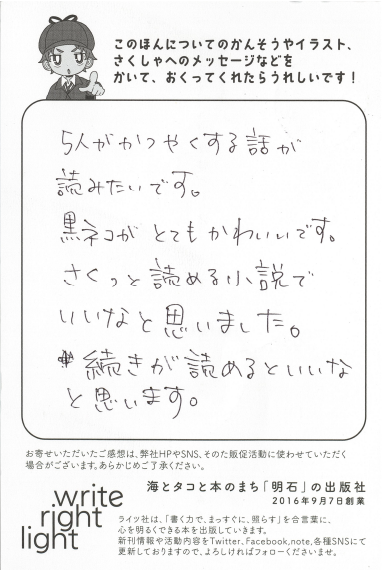 このほんについてのかんそうやイラスト、
さくしゃへのメッセージなどを
かいて、おくってくれたらうれしいです！
5人がかつやくする話が
読みたいです。
黒ネコがとてもかわいいです。
さくっと読める小説で
いいなと思いました。
続きが読めるといいな
と思います。
お寄せいただいたご感想は、弊社HPやSNS、そのた販促活動に使わせていただく
場合がございます。あらかじめご了承ください。
海とタコと本のまち「明石」の出版社
2016年9月7日創業
write
right
light
ライツ社は、「書く力で、まっすぐに、照らす」を合言葉に、
心を明るくできる本を出版していきます。
新刊情報や活動内容をTwitter、Facebook、note、各種SNSにて
更新しておりますので、よろしければフォローくださいませ。